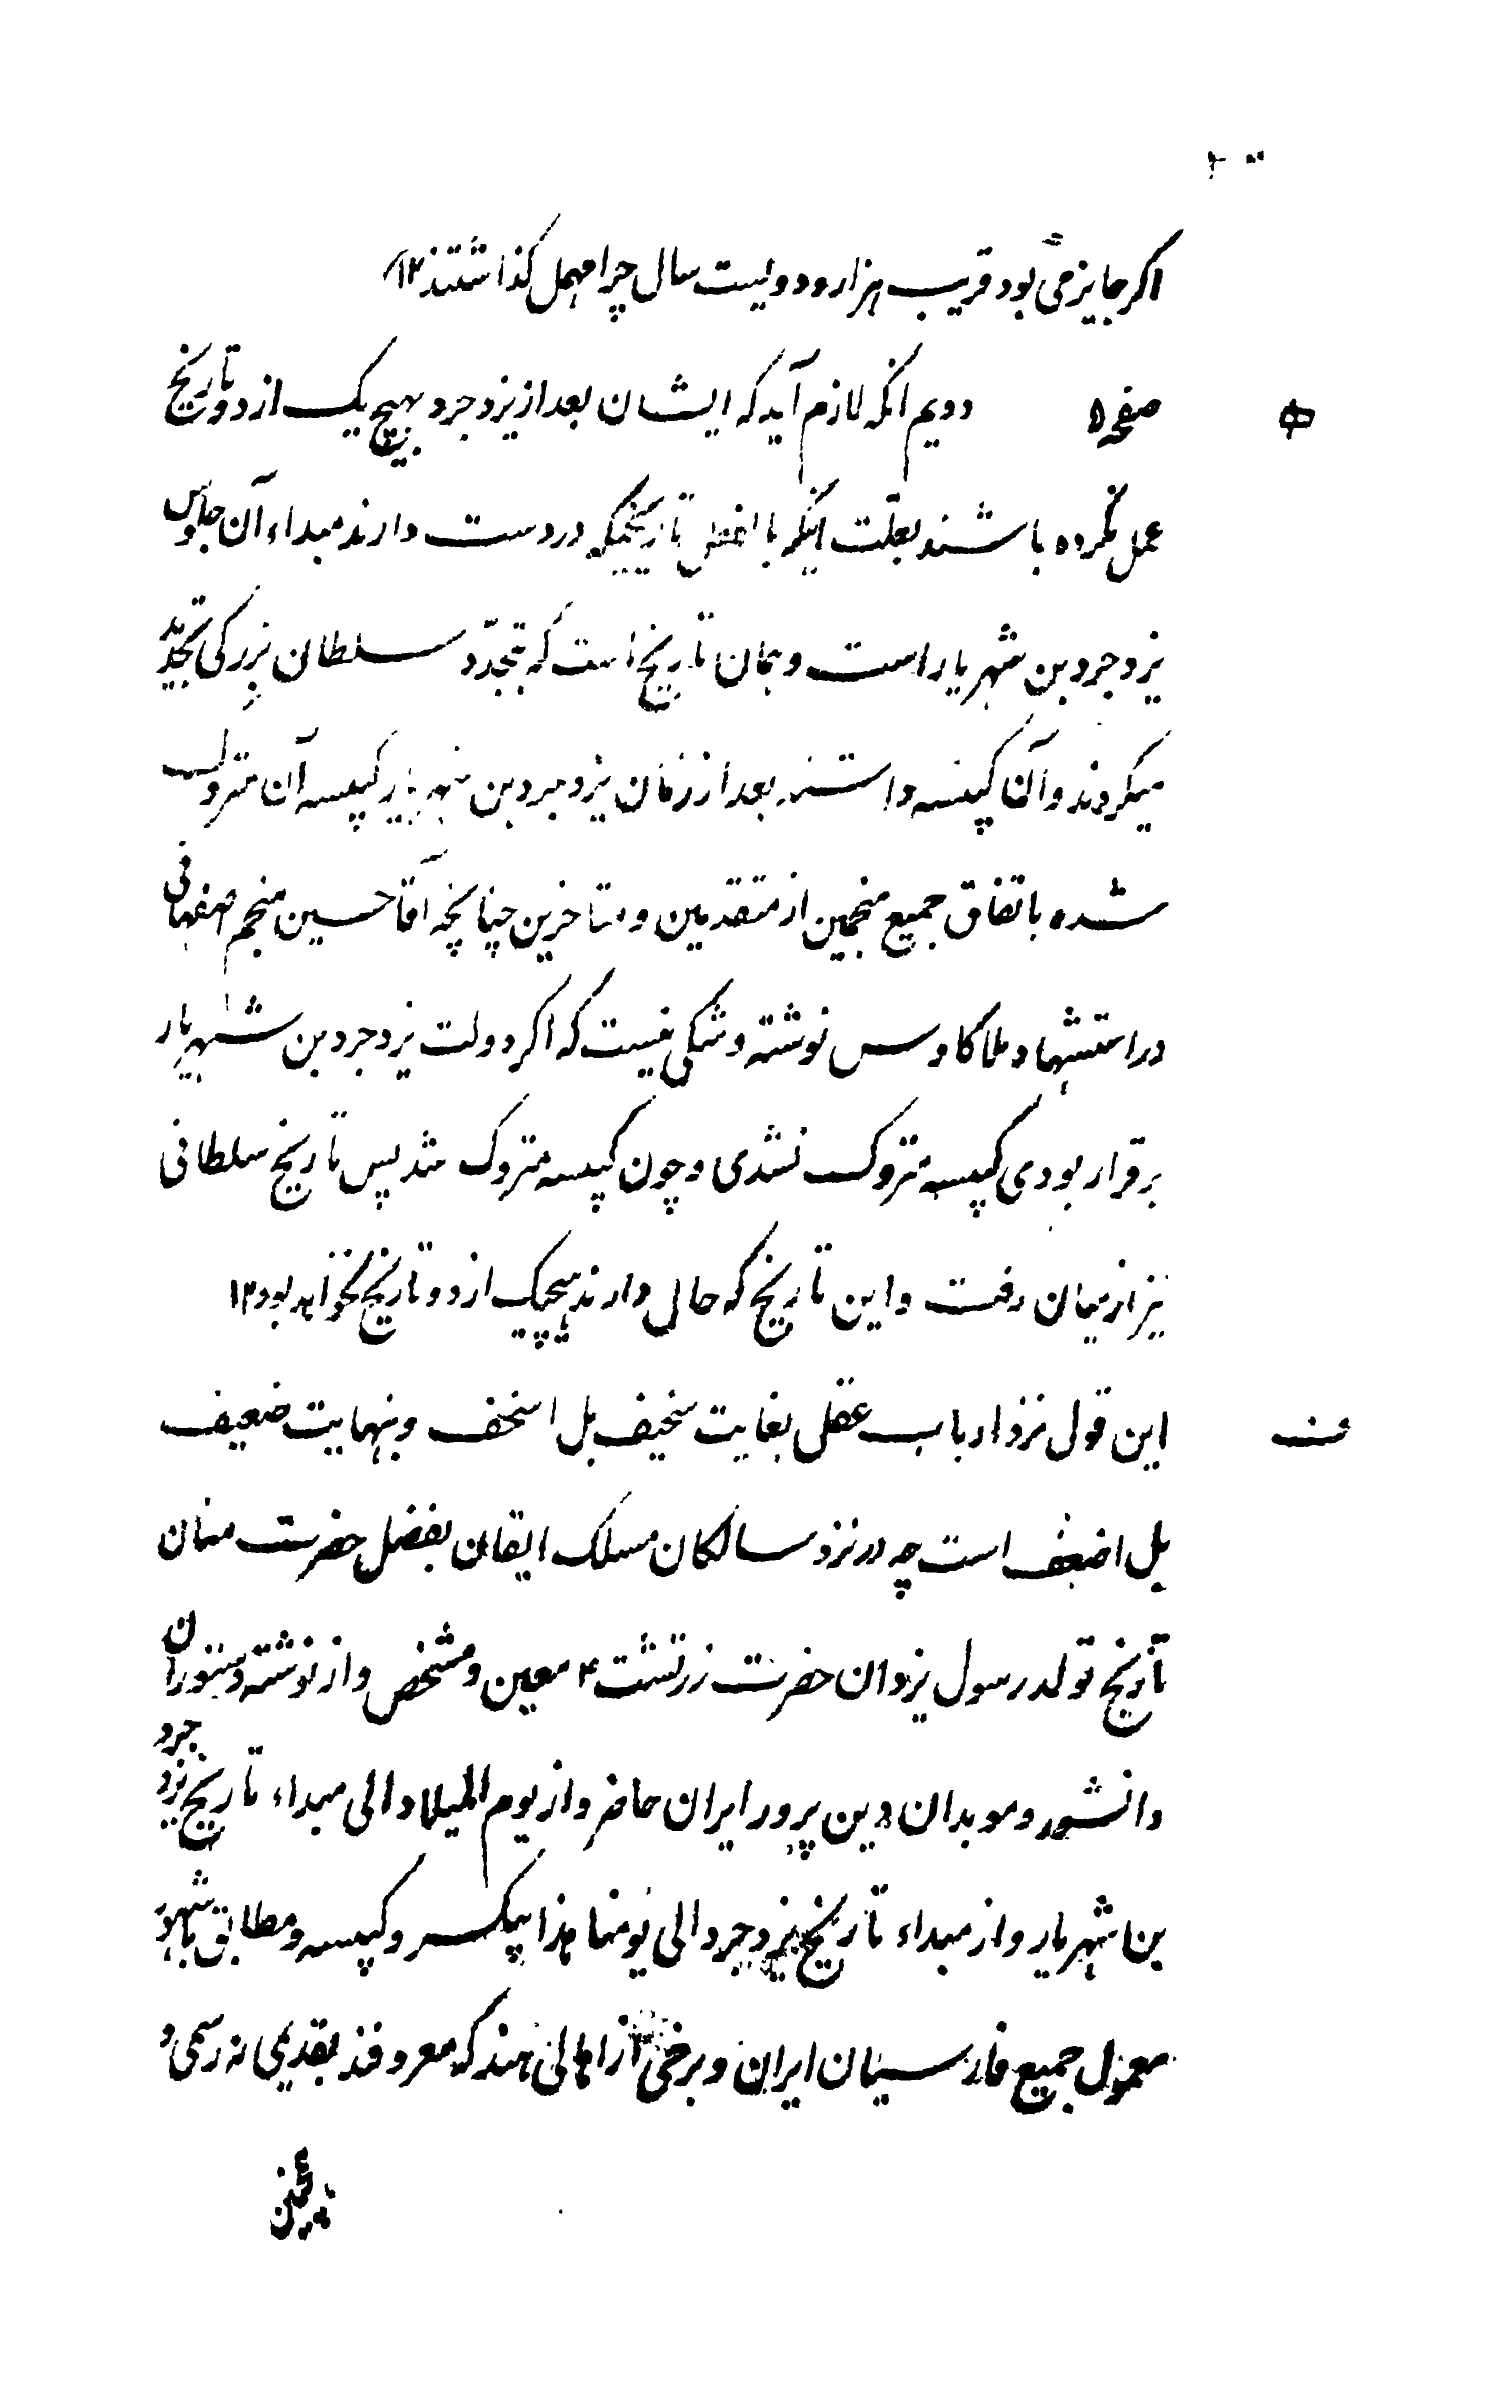 ۲۰
اگر جایز می بود قریب هزار و دویست سال چرا مهمل گذاشتند ۱۲
صفحه ۵ دویم انکه لازم آید که ایشان بعد از یزدجرد بهیچ یک از دو تاریخ
عمل نکرده باشند بعلت اینکه بالفعل تاریخیکه در دست دارند مبداء آن جلوس
یزدجرد بن شهریار است و همان تاریخ است که بتجدّد سلطان بزرگی تجدید
میکردند و آن کبیسه داشته بعد از زمان یزدجرد بن شهریار کبیسه آن متروک
شده باتفاق جمیع منجمین از متقدمین و متاخرین چنانچه آقا حسین منجم اصفهانی
در استشهاد ملا کاوس نوشته و شکی نیست که اکر دولت یزدجرد بن شهریار
برقرار بودی کبیسه متروک نشدی و چون کبیسه متروک شد پس تاریخ سلطانی
نیز از میان رفت و این تاریخ که حال دارند هیچیک از دو تاریخ نخواهد بود ۱۲
این قول نزد ارباب عقل بغایت سخیف بل اسخف و بنهایت ضعیف
بل اضعف است چه در نزد سالکان مسلک ایقان بفضل حضرت منان
تاریخ تولد رسول یزدان حضرت زرتشت ۴ معین و مشخص و از نوشته دستوران
دانشور و موبدان دین پرور ایران حاضر و از یوم المیلاد الی مبداء تاریخ یزدجرد
بن شهریار و از مبداء تاریخ یزدجرد الی یومنا هذا بیکسر و کبیسه و مطابق با شهور
معمول جمیع فارسیان ایران و برخی از اهالی هند که معروفند بقدیمی نه رسمی و